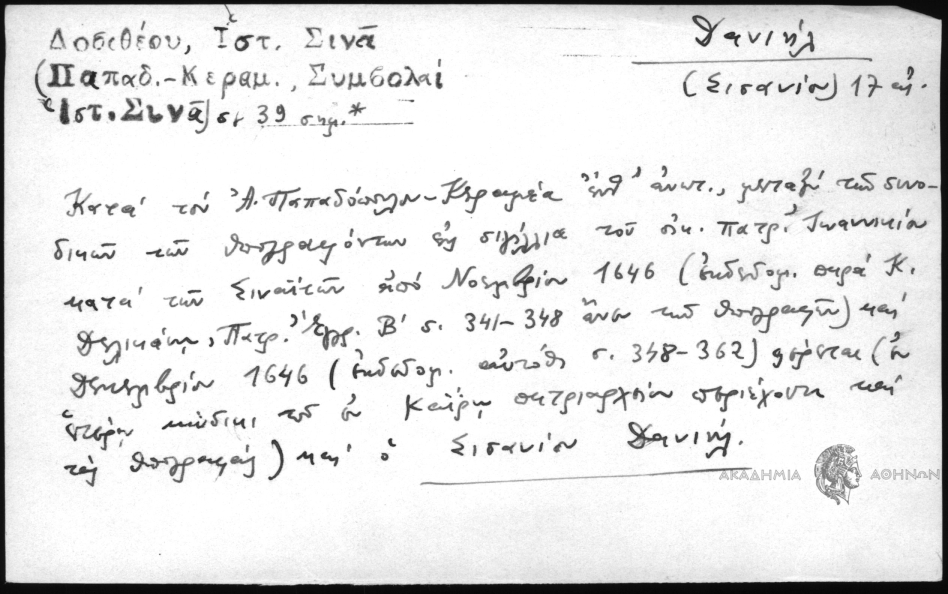 Δοσιθέου, Ἱστ. Σινᾶ
(Παπαδ.-Κεραμ., Συμβολαί
Ἱστ. Σινᾶ) σ. 39 σημ.*
Δανιήλ
(Σισανίου) 17 αἰ.
Κατά τόν Ἀ. Παπαδόπουλον-Κεραμέα ἔνθ' ἀνωτ., μεταξύ τῶν συνο-
δικῶν τῶν ὑπογραφόντων εἰς σιγίλλια τοῦ οἰκ. πατρ. Ἰωαννικίου
κατά τῶν Σιναϊτῶν ἀπό Νοεμβρίου 1646 (ἐκδεδομ. παρά Κ.
Δελικάνη, Πατρ. Ἔγγρ. Β' σ. 341-348 ἄνευ τῶν ὑπογραφῶν) καί
Δεκεμβρίου 1646 (ἐκδεδομ. αὐτόθι σ. 348-362) φέρεται (ἐν
ἑτέρῳ κώδικι τοῦ ἐν Καΐρῳ πατριαρχείου περιέχοντι καί
τάς ὑπογραφάς) καί ὁ Σισανίου Δανιήλ.
ΑΚΑΔΗΜΙΑ ΑΘΗΝΩΝ